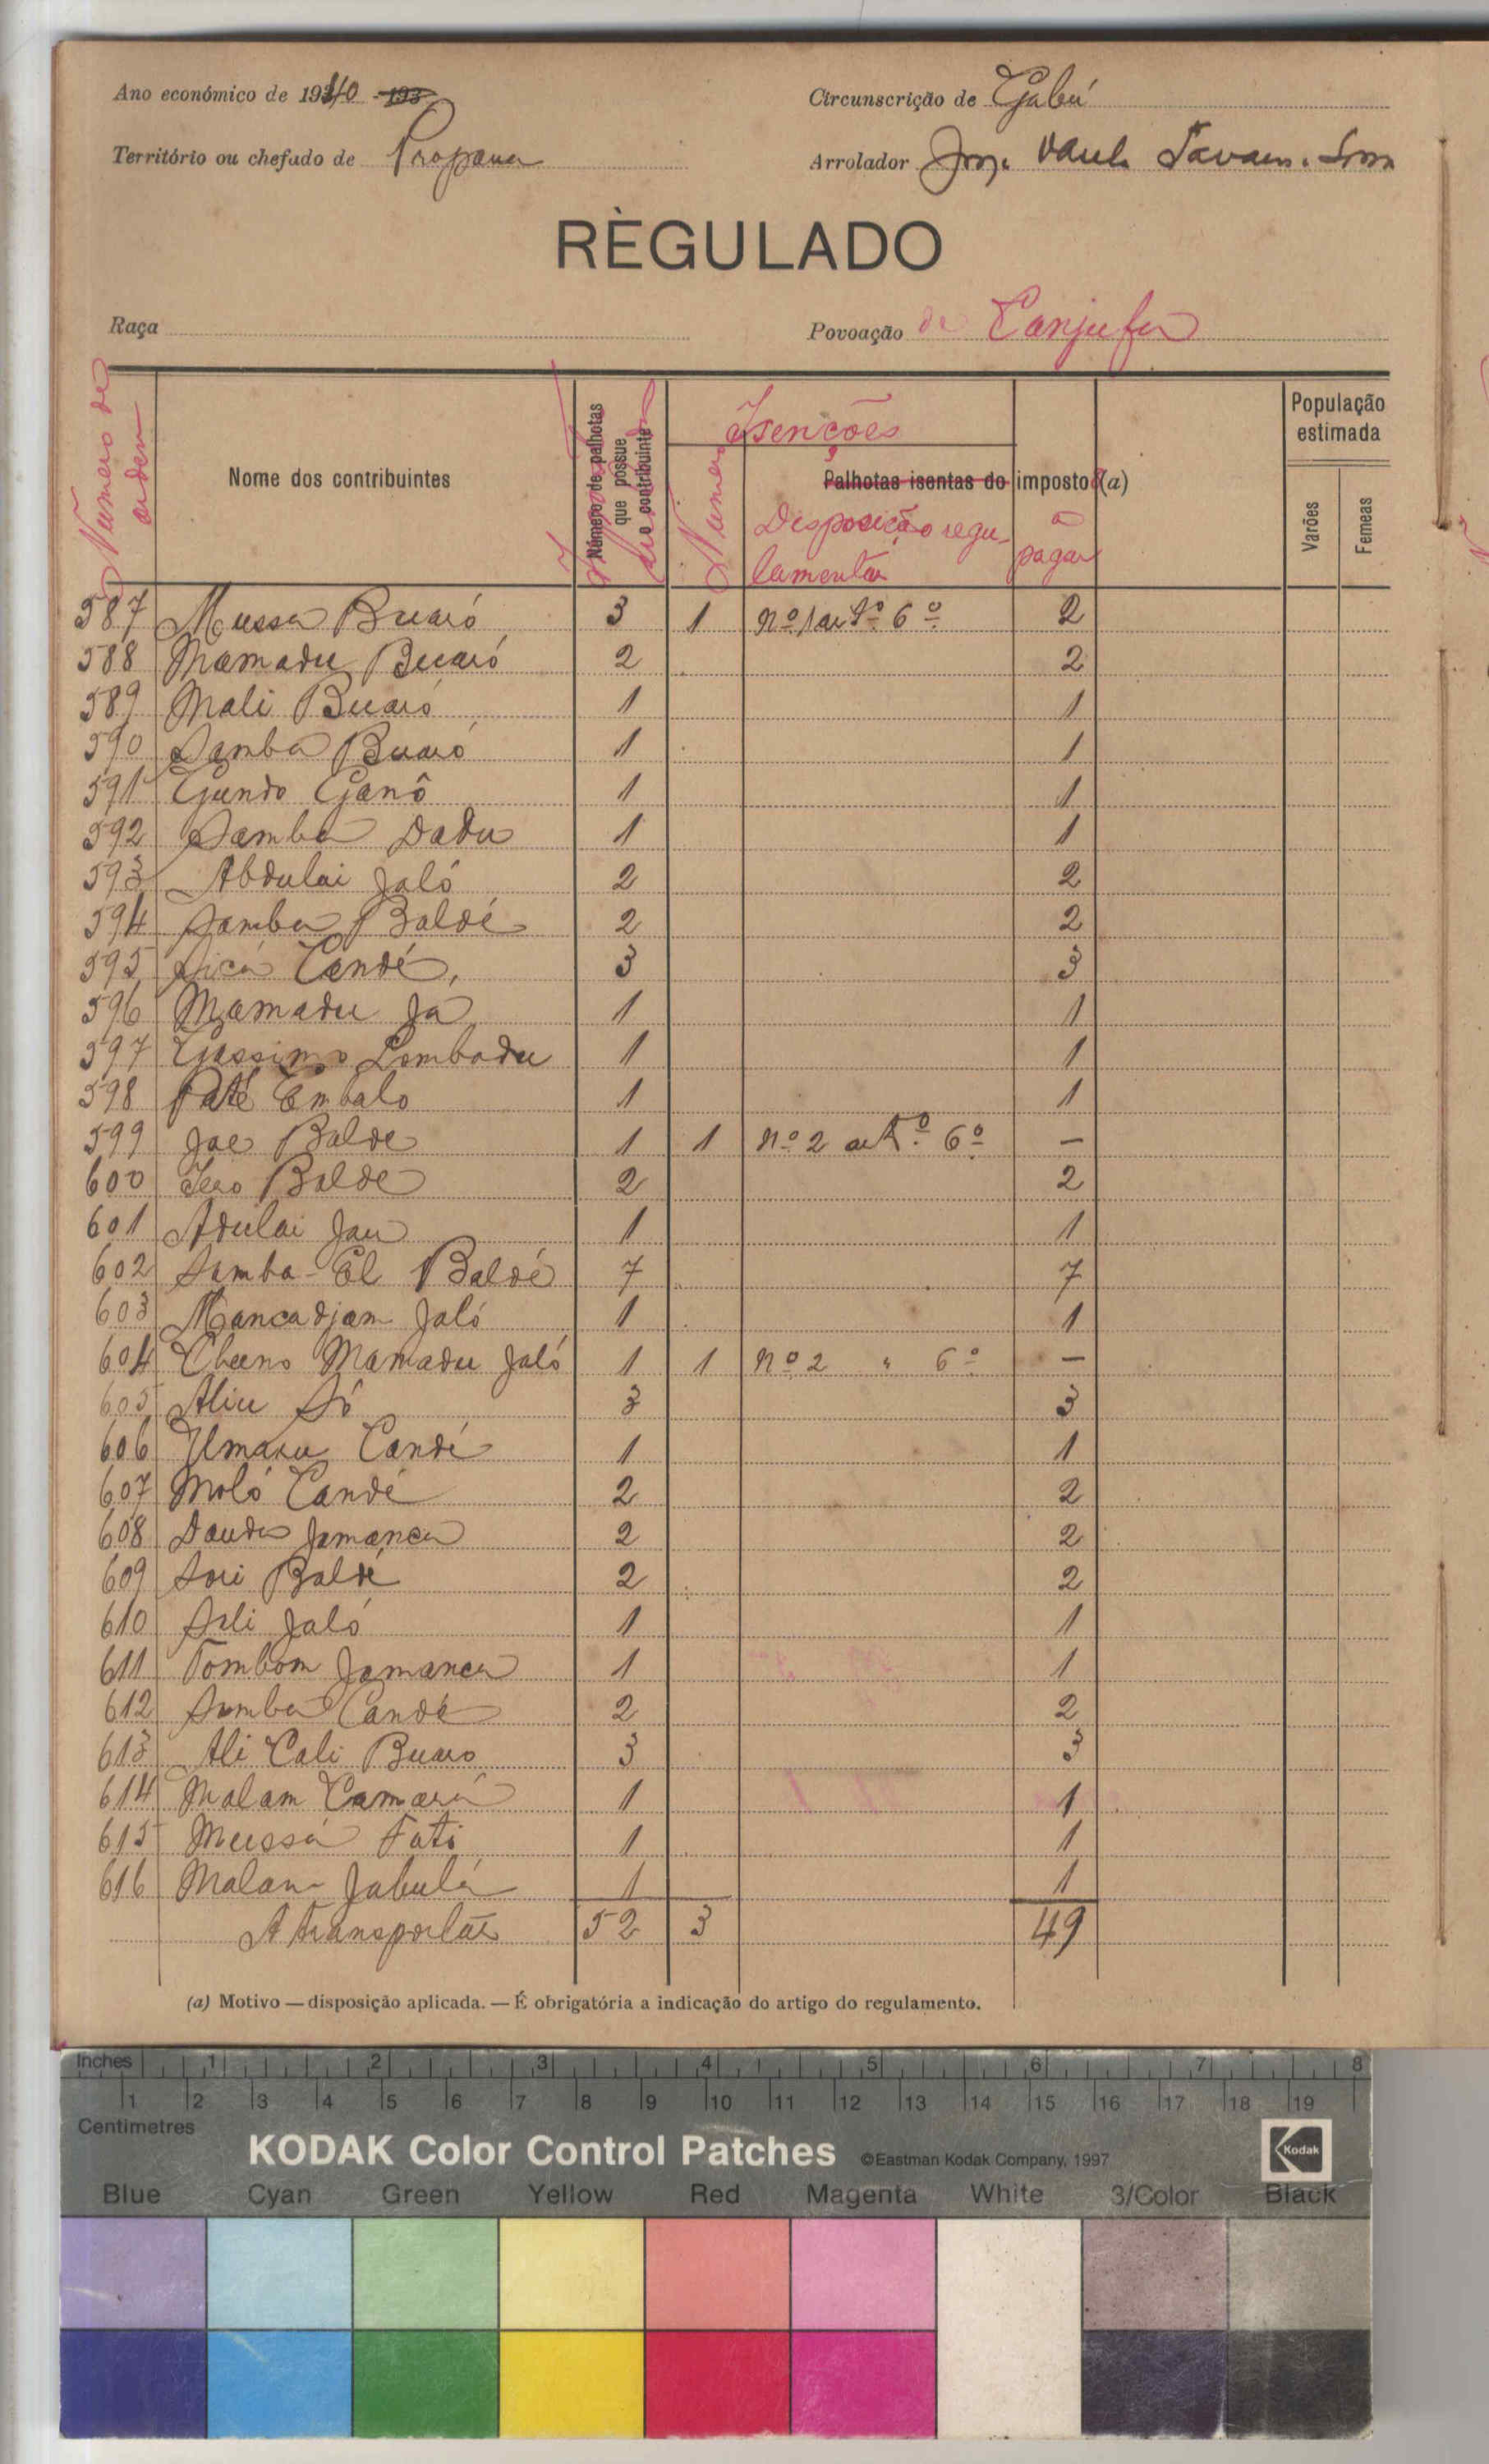 Ano económico de 1940 -193
Circunscrição de Gabú
Território ou chefado de Propana
Arrolador
RÈGULADO
Raça
Povoação de Canjufa
Numero de ordem
Nome dos contribuintes
Número de palhotas que possue o contribuinte
Isenções
Numero
Palhotas isentas do imposto (a)
Disposição regulamentar
a pagar
População estimada
Varões
Femeas
587 Mussa Buaró 3 1 nº 1 artº 6º 2
588 Mamadu Buaró 2 2
589 Mali Buaró 1 1
590 Samba Buaró 1 1
591 Gundo Ganô 1 1
592 Samba Dadu 1 1
593 Abdulai Jaló 2 2
594 Samba Baldé 2 2
595 Sica Candé 3 3
596 Mamadu Ja 1 1
597 Gassimo Lombadu 1 1
598 Paté Embalo 1 1
599 Jae Balde 1 1 nº 2 artº 6º —
600 Iero Balde 2 2
601 Adulai Jau 1 1
602 Samba-El Baldé 7 7
603 Mancadjam Jaló 1 1
604 Cherno Mamadu Jaló 1 1 nº 2 " 6º —
605 Aliu Só 3 3
606 Umaru Candé 1 1
607 Moló Candé 2 2
608 Dauda Jamanca 2 2
609 Sori Baldé 2 2
610 Sali Jaló 1 1
611 Tombom Jamanca 1 1
612 Samba Candé 2 2
613 Ali Cali Buaro 3 3
614 Malam Camará 1 1
615 Mussá Fati 1 1
616 Malam Jabulá 1 1
A transportar 52 3 49
(a) Motivo — disposição aplicada. — É obrigatória a indicação do artigo do regulamento.
Inches 1 2 3 4 5 6 7 8
1 2 3 4 5 6 7 8 9 10 11 12 13 14 15 16 17 18 19
Centimetres
KODAK Color Control Patches ©Eastman Kodak Company, 1997 Kodak
Blue Cyan Green Yellow Red Magenta White 3/Color Black